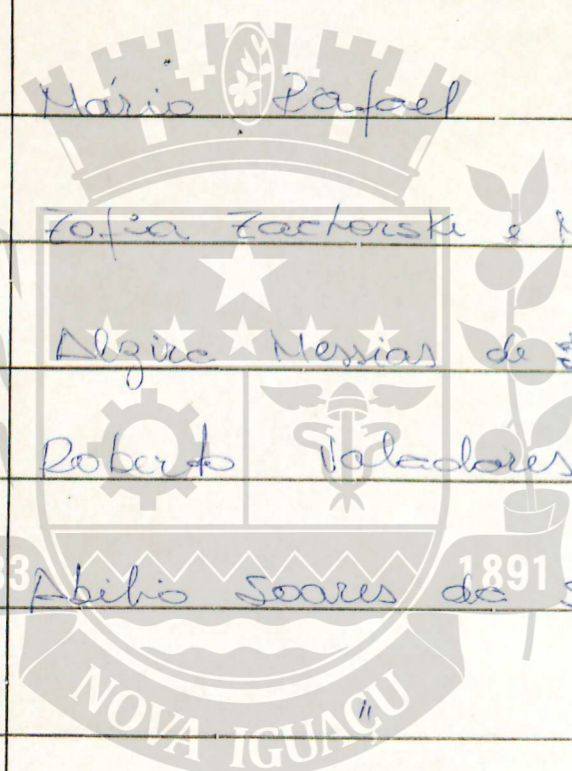 Mário Rafael
Zofia Zachorski e
Alzira Messias de
Roberto Valadares
Abilio Soares da
33
1891
"
NOVA IGUAÇU